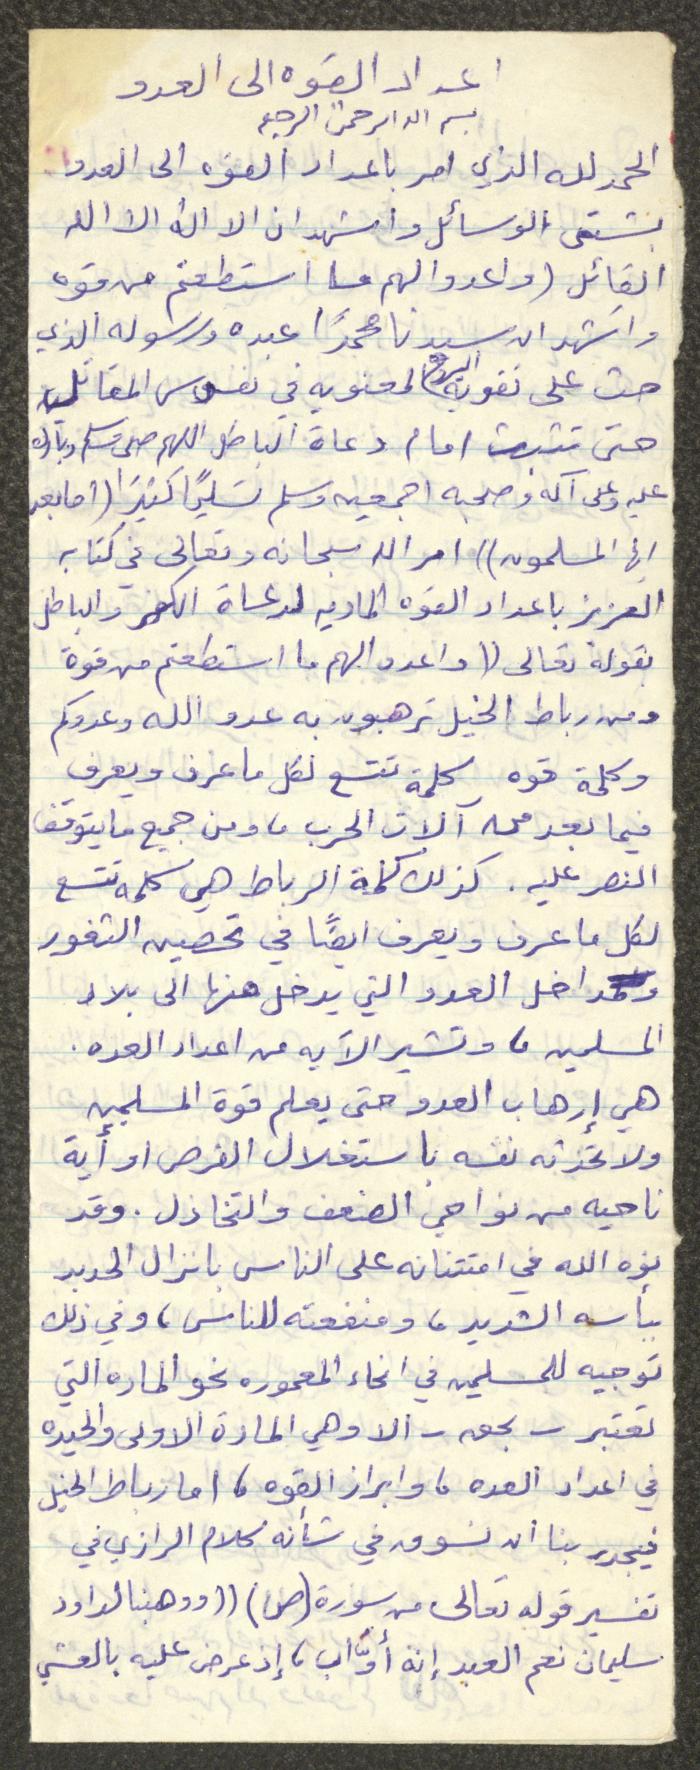 اعداد القوه الى العدو
بسم الله الرحمن الرحيم
الحمد لله الذي امر باعداد القوه الى العدو
بشتى الوسائل وأشهد ان لا اله الا الله
القائل (واعدوا لهم ما استطعتم من قوه
واشهد ان سيدنا محمدًا عبده ورسوله الذي
حث على تقوية الروح المعنويه في نفوس المقاتلين
حتى تثبت امام دعاة الباطل اللهم صلى وسلم وبارك
عليه وعلى آله وصحبه اجمعين وسلم تسليمًا كثيرًا (اما بعد
ايها المسلمون)) امر الله سبحانه وتعالى في كتابه
العزيز باعداد القوه الماديه لدعاة الكفر والباطل
بقوله تعالى ((واعدوا لهم ما استطعتم من قوة
ومن رباط الخيل ترهبون به عدو الله وعدوكم
وكلمة قوه كلمة تتسع لكل ما عرف ويعرف
فيما بعد من آلات الحرب، ومن جميع ما يتوقف
النصر عليه. كذلك كلمة الرباط هي كلمه تتسع
لكل ما عرف ويعرف ايضًا في تحصين الثغور
ومداخل العدو التي يدخل منها الى بلاد
المسلمين، وتشير الآيه من اعداد العده.
هي إرهاب العدو حتى يعلم قوة المسلمين
ولا تحدثه نفسه باستغلال الفرص او أية
ناحيه من نواحي الضعف والتخاذل. وقد
نوه الله في امتنانه على الناس بانزال الحديد
ببأسه الشديد، ومنفعته للناس، وفي ذلك
توجيه للمسلمين في انحاء المعموره نحو الماده التي
تعتبر - بحق - الا وهي المادة الاولى والجيده
في اعداد العده، وابراز القوه، اما رباط الخيل
فيجدر بنا أن نسوق في شأنه كلام الرازي في
تفسير قوله تعالى من سورة (ص) ((ووهبنا لداود
سليمان نعم العبد إنه أوّاب، إذ عرض عليه بالعشي